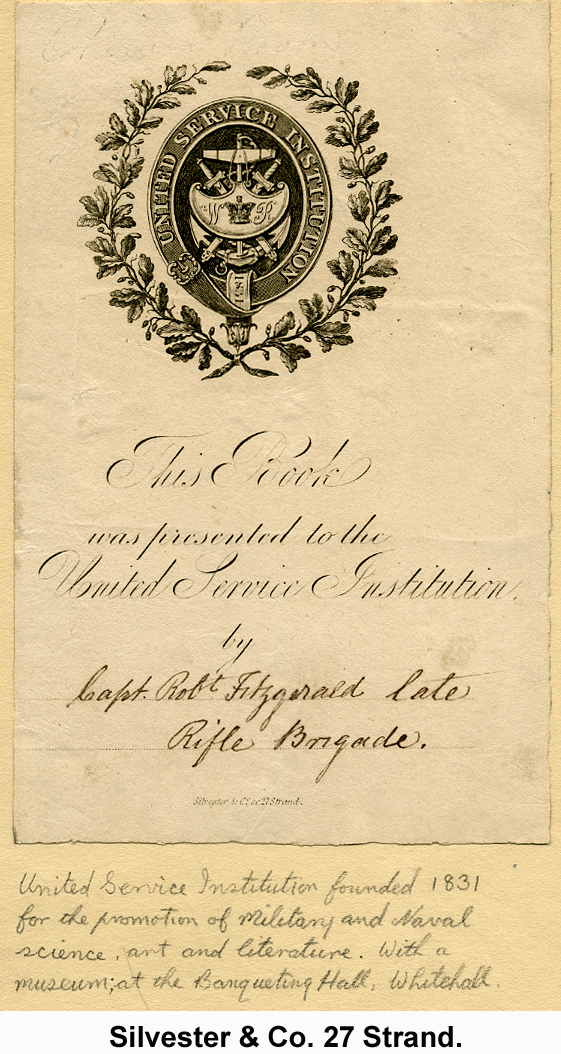 UNITED SERVICE INSTITUTION
W R
1831
This Book
was presented to the
United Service Institution.
by
Capt. Robt Fitzgerald late
Rifle Brigade.
Silvester & Co. sc 27 Strand.
United Service Institution founded 1831
for the promotion of Military and Naval
science, art and literature. With a
museum; at the Banqueting Hall, Whitehall.
Silvester & Co. 27 Strand.